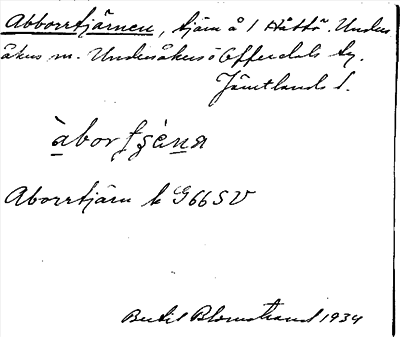 Abborrtjärnen, tjärn å 1 Håttå. Unders
åkers sn. Undersåkers o Offerdals tg.
Jämtlands l.
Aborrtjärn k G66SV
Bertil Blomstrand 1934